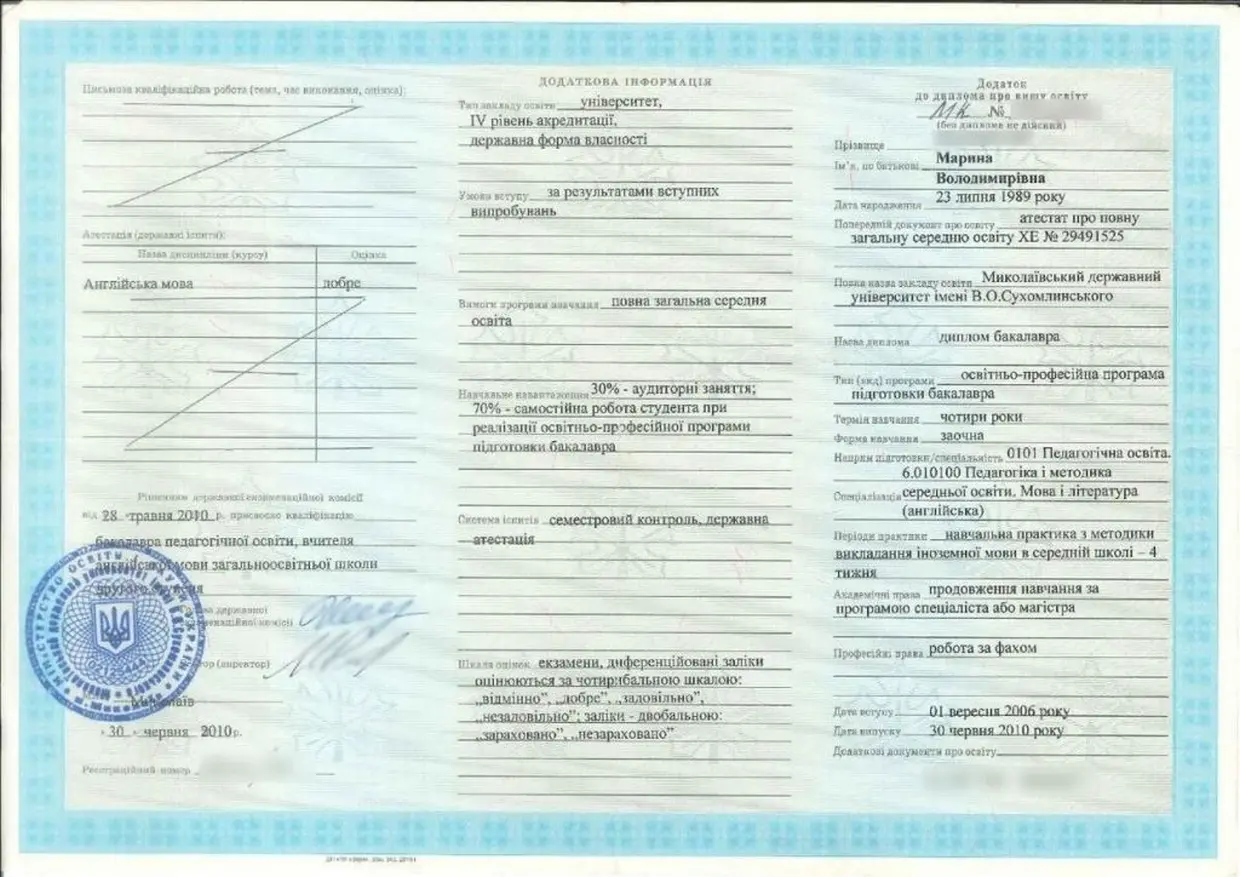 Письмова кваліфікаційна робота (тема, час виконання, оцінка):
Атестація (державні іспити):
Назва дисципліни (курсу) Оцінка
Англійська мова добре
Рішенням державної екзаменаційної комісії
від 28 травня 2010 р. присвоєно кваліфікацію
бакалавра педагогічної освіти, вчителя
англійської мови загальноосвітньої школи
другого ступеня
Голова державної
екзаменаційної комісії
(директор)
30 червня 2010 р.
Реєстраційний номер
ДОДАТКОВА ІНФОРМАЦІЯ
Тип закладу освіти університет,
IV рівень акредитації,
державна форма власності
Умови вступу за результатами вступних
випробувань
Вимоги програми навчання повна загальна середня
освіта
Навчальне навантаження 30% - аудиторні заняття;
70% - самостійна робота студента при
реалізації освітньо-професійної програми
підготовки бакалавра
Система іспитів семестровий контроль, державна
атестація
Шкала оцінок екзамени, диференційовані заліки
оцінюються за чотирибальною шкалою:
„відмінно”, „добре”, „задовільно”,
„незадовільно”; заліки - двобальною:
„зараховано”, „незараховано”
Додаток
до диплома про вищу освіту
МК №
(без диплома не дійсний)
Прізвище
Ім’я, по батькові Марина
Володимирівна
Дата народження 23 липня 1989 року
Попередній документ про освіту атестат про повну
загальну середню освіту ХЕ № 29491525
Повна назва закладу освіти Миколаївський державний
університет імені В.О.Сухомлинського
Назва диплома диплом бакалавра
Тип (вид) програми освітньо-професійна програма
підготовки бакалавра
Термін навчання чотири роки
Форма навчання заочна
Напрям підготовки/спеціальність 0101 Педагогічна освіта.
6.010100 Педагогіка і методика
Спеціалізація середньої освіти. Мова і література
(англійська)
Періоди практики навчальна практика з методики
викладання іноземної мови в середній школі – 4
тижня
Академічні права продовження навчання за
програмою спеціаліста або магістра
Професійні права робота за фахом
Дата вступу 01 вересня 2006 року
Дата випуску 30 червня 2010 року
Додаткові документи про освіту